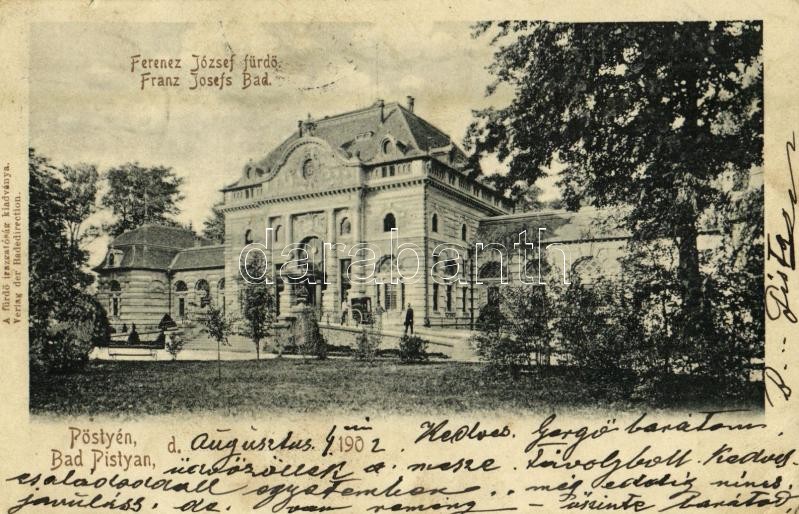 Ferencz József fürdő.
Franz Josefs Bad.
A fürdő igazgatóság kiadványa.
Verlag der Badedirection.
darabanth
Pöstyén,
Bad Pistyan,
d. Augusztus 1902
Kedves Gergő barátom
üdvözöllek a messze távolbolt Kedves
családoddall egyetemben .. még eddig nincs
javulás. de. van remény - őszinte barátod
B... Pista